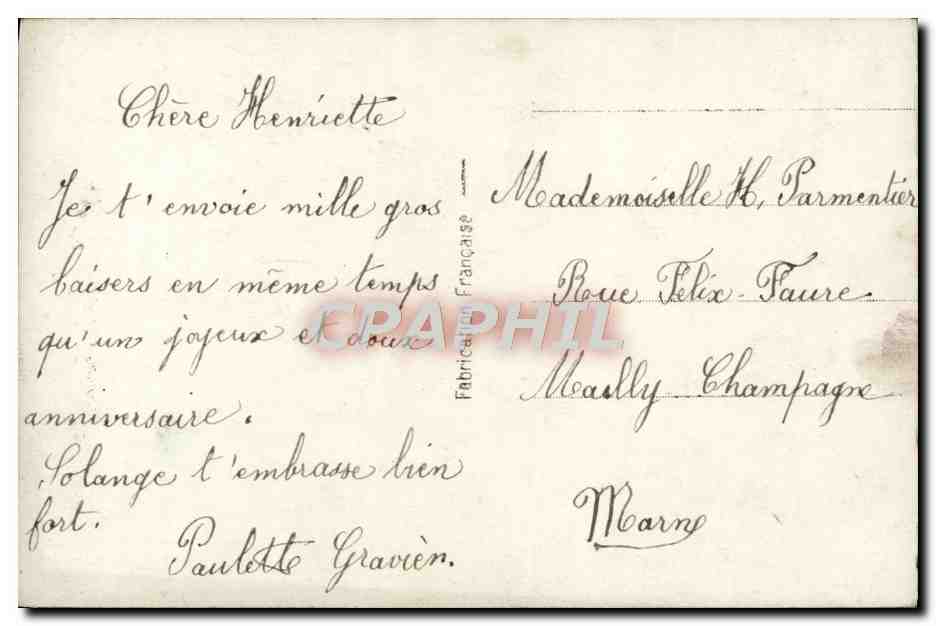 Chère Henriette
Je t'envoie mille gros
baisers en même temps
qu'un joyeux et doux
anniversaire.
Solange t'embrasse bien
fort.
Paulette Gravièn.
Fabrication Française
Mademoiselle H, Parmentier
Rue Félix-Faure.
Mailly Champagne
Marne
CPAPHIL